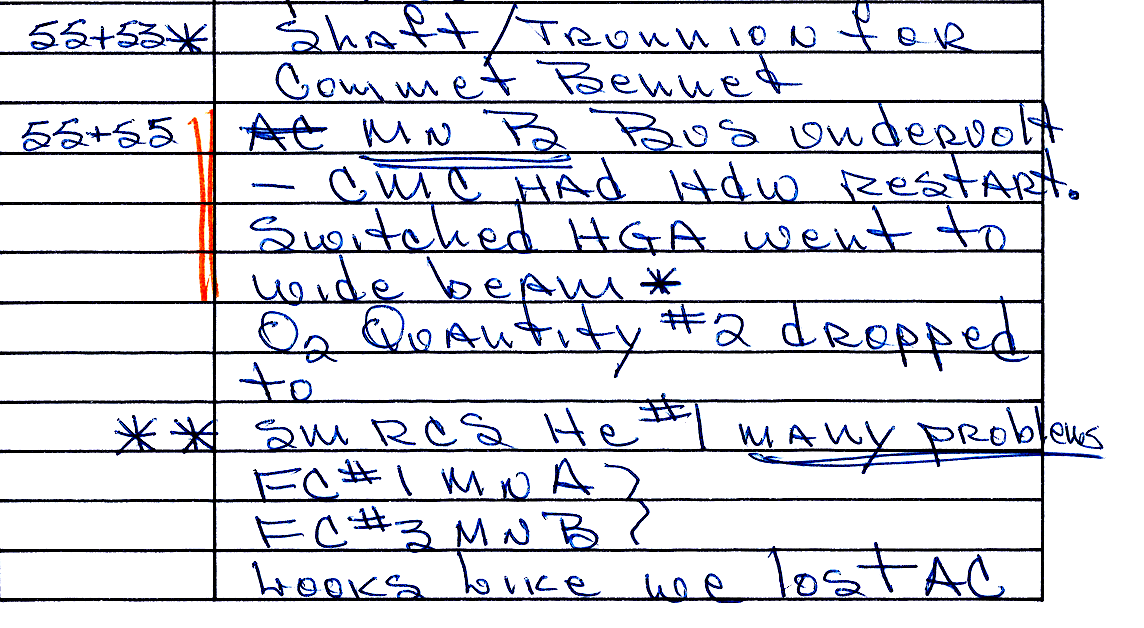 55+53* Shaft/Trunnion for
Commet Bennet
55+55 AC MN B Bus undervolt
- CMC HAd Hdw RestARt.
Switched HGA went to
wide beam *
O2 Quantity #2 dropped
to
** SM RCS He #1 many problems
FC #1 MN A }
FC #3 MN B }
Looks Like we lost AC